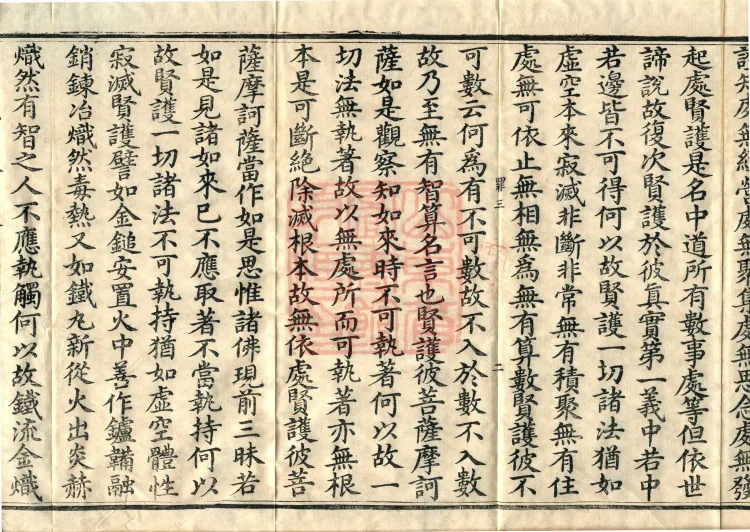 知處無經營處無聚集處無思念處無發
起處賢護是名中道所有數事處等但依世
諦說故復次賢護於彼真實第一義中若中
若邊皆不可得何以故賢護一切諸法猶如
虛空本來寂滅非斷非常無有積聚無有住
處無可依止無相無爲無有算數賢護彼不
罪三
二
可數云何爲有不可數故不入於數不入數
故乃至無有智算名言也賢護彼菩薩摩訶
薩如是觀察知如來時不可執著何以故一
切法無執著故以無處所而可執著亦無根
本是可斷絕除滅根本故無依處賢護彼菩
薩摩訶薩當作如是思惟諸佛現前三昧若
如是見諸如來已不應取著不當執持何以
故賢護一切諸法不可執持猶如虛空體性
寂滅賢護譬如金鎚安置火中善作鑪鞴融
銷鍊冶熾然毒熱又如鐵丸新從火出炎赫
熾然有智之人不應執觸何以故鐵流金熾